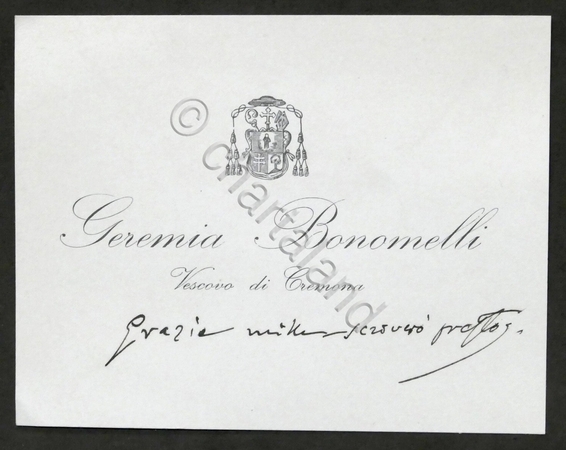 Geremia Bonomelli
Vescovo di Cremona
Grazie mille scriverò presto.
© chartaland